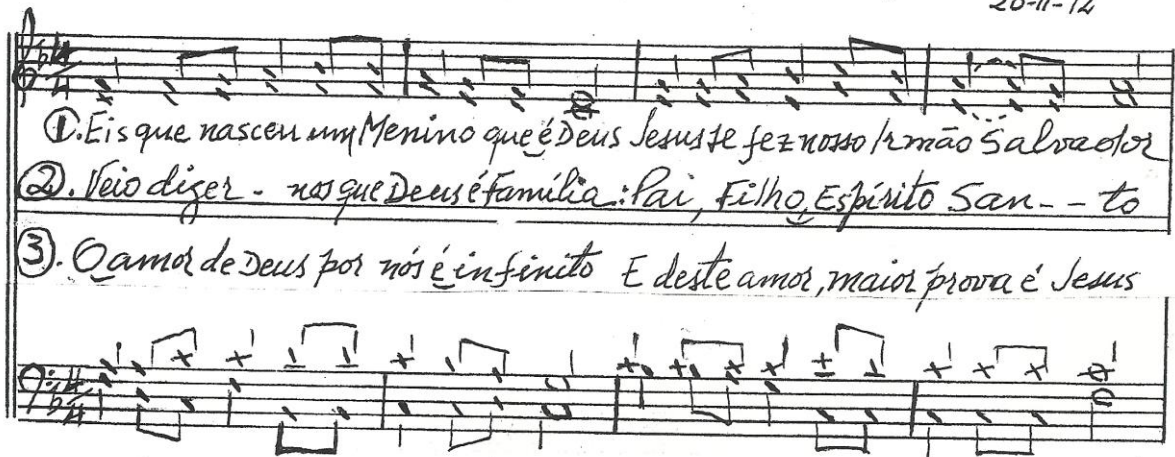 20-11-12
①. Eis que nasceu um Menino que é Deus Jesus se fez nosso Irmão Salvador
②. Veio dizer - nos que Deus é Família: Pai, Filho, Espírito San - - to
③. O amor de Deus por nós é infinito E deste amor, maior prova é Jesus